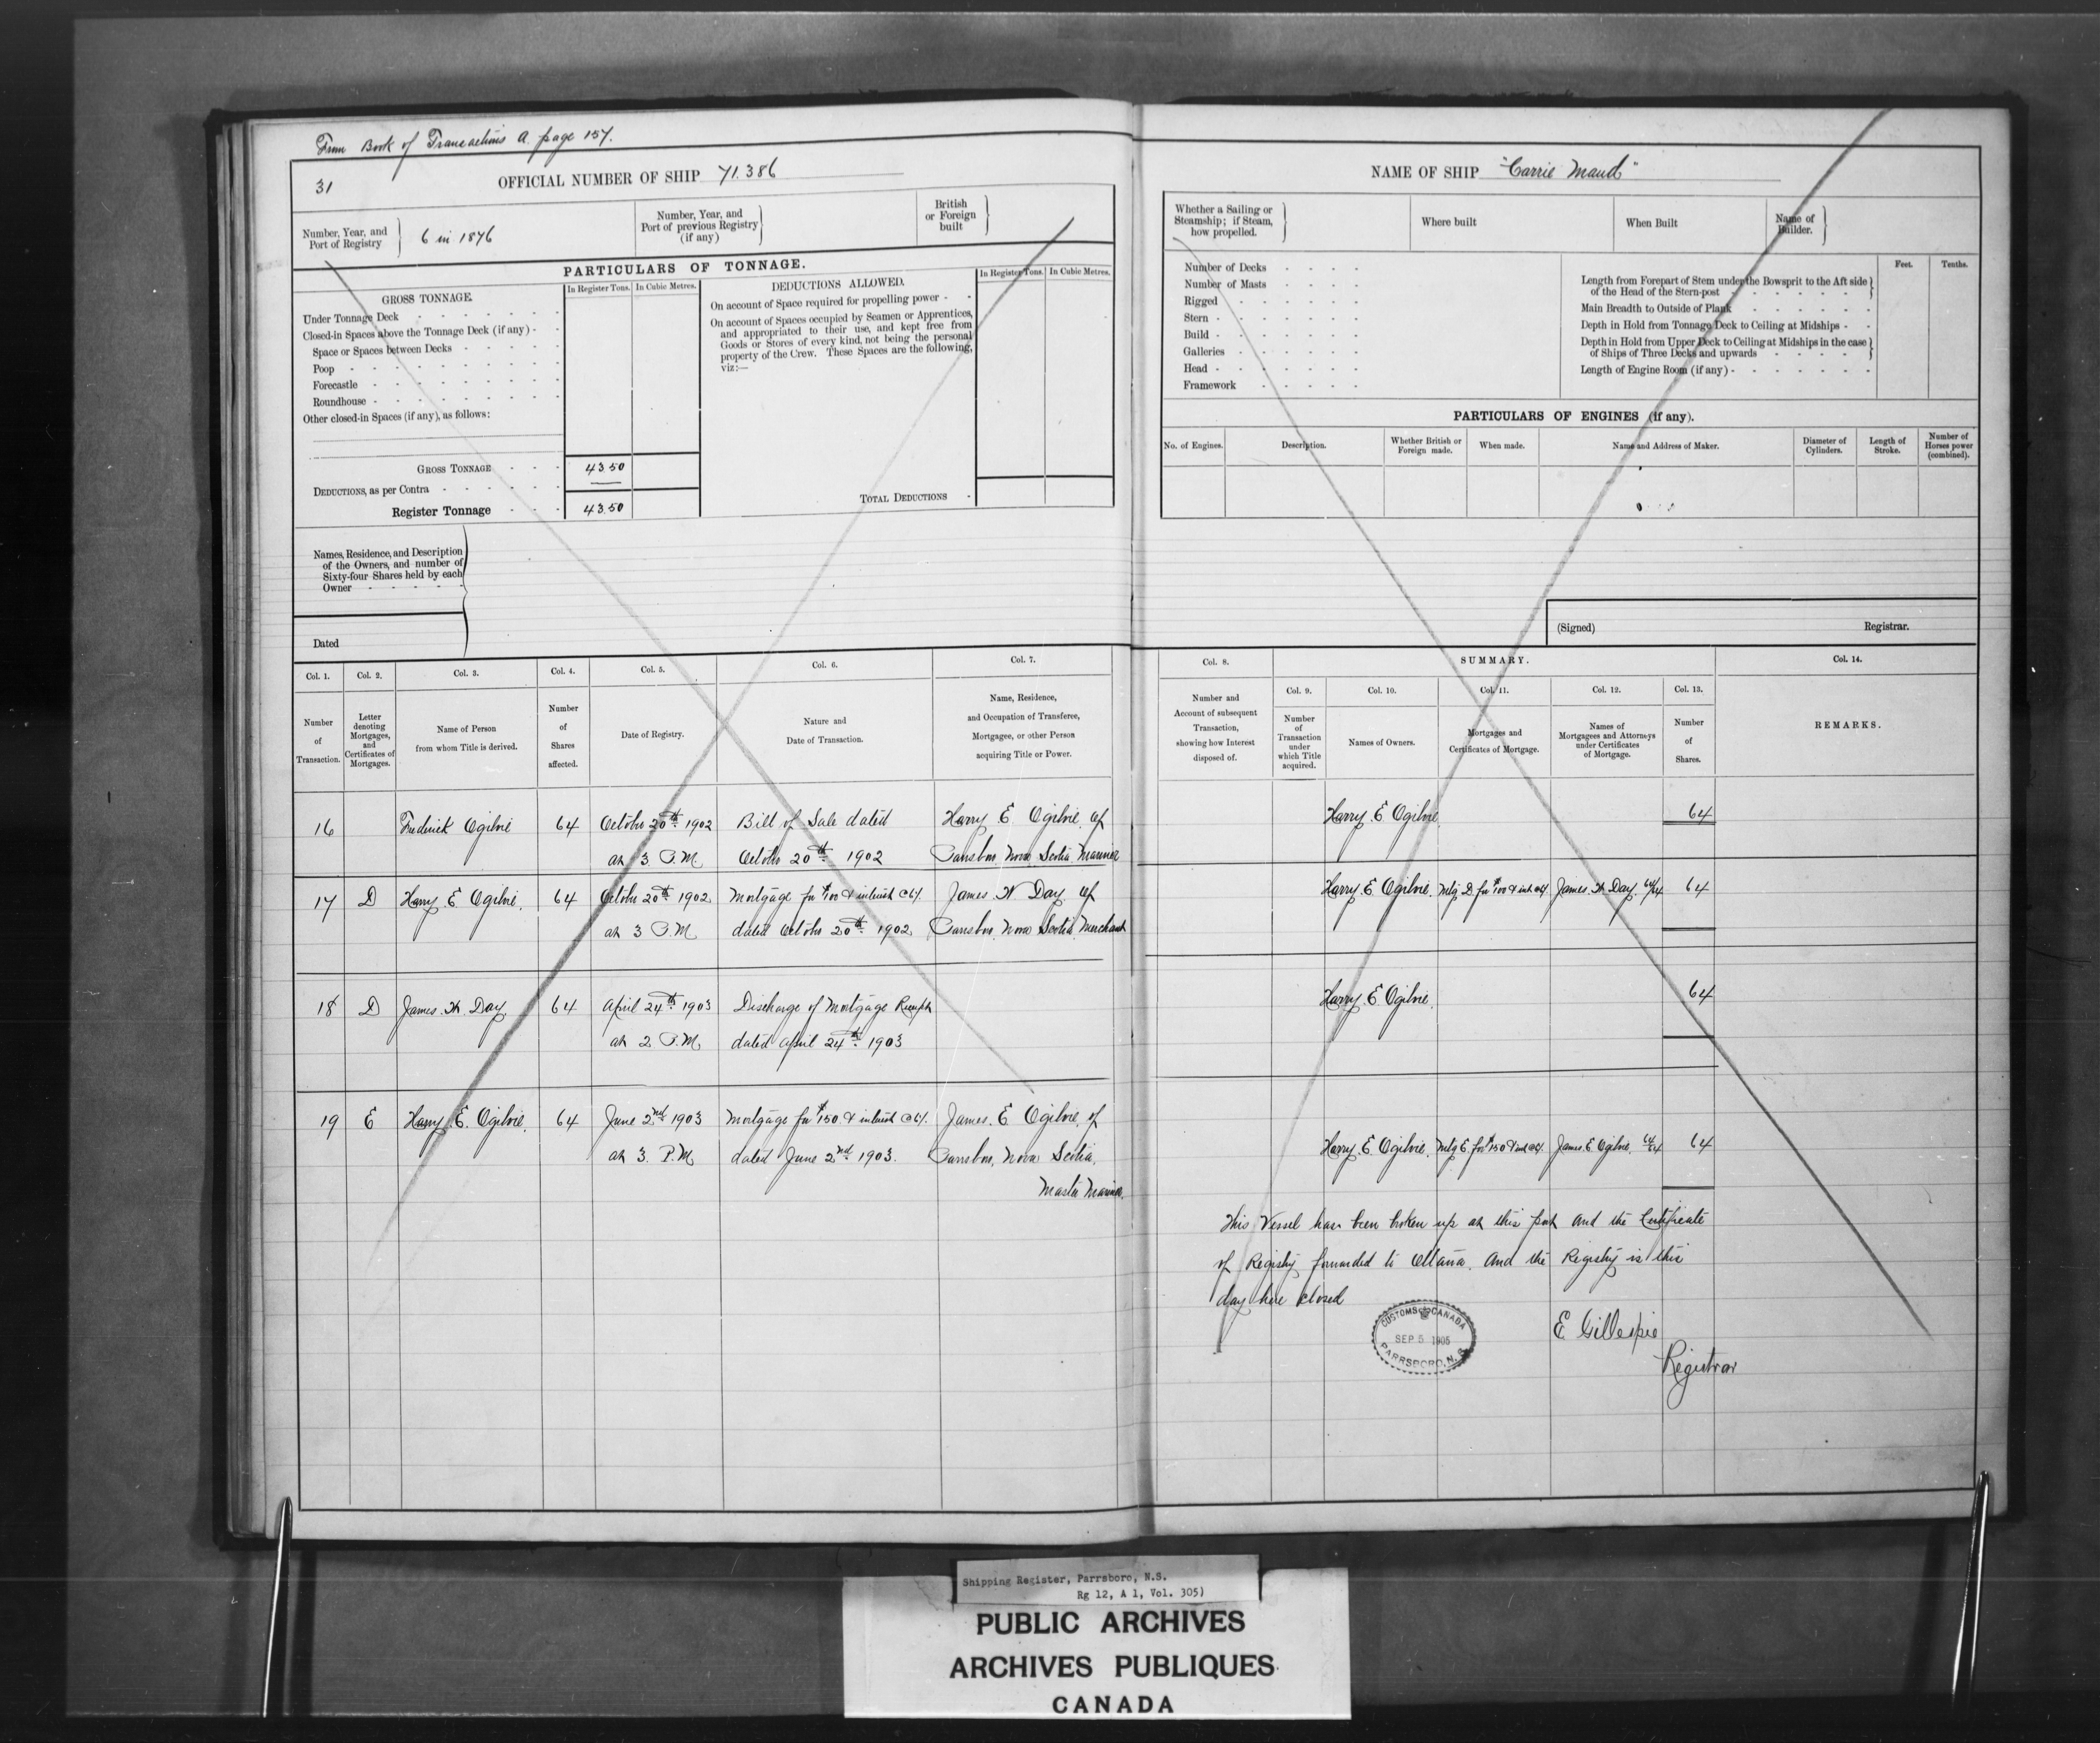 From Book of Transactions A page 157.
31
OFFICIAL NUMBER OF SHIP 71.386
Number, Year, and Port of Registry
6 in 1876
Number, Year, and Port of previous Registry (if any)
British or Foreign built
PARTICULARS OF TONNAGE.
GROSS TONNAGE.
In Register Tons. In Cubic Metres.
DEDUCTIONS ALLOWED.
In Register Tons. In Cubic Metres.
Under Tonnage Deck
Closed-in Spaces above the Tonnage Deck (if any)
Space or Spaces between Decks
Poop
Forecastle
Roundhouse
Other closed-in Spaces (if any), as follows:
On account of Space required for propelling power
On account of Spaces occupied by Seamen or Apprentices,
and appropriated to their use, and kept free from
Goods or Stores of every kind, not being the personal
property of the Crew. These Spaces are the following,
viz:—
GROSS TONNAGE 43.50
DEDUCTIONS, as per Contra
Register Tonnage 43.50
TOTAL DEDUCTIONS
Names, Residence, and Description
of the Owners, and number of
Sixty-four Shares held by each
Owner
Dated
Col. 1. Col. 2. Col. 3. Col. 4. Col. 5. Col. 6. Col. 7.
Number of Transaction.
Letter denoting Mortgages, and Certificates of Mortgages.
Name of Person from whom Title is derived.
Number of Shares affected.
Date of Registry.
Nature and Date of Transaction.
Name, Residence, and Occupation of Transferee, Mortgagee, or other Person acquiring Title or Power.
16 Frederick Ogilvie 64 October 20th 1902 Bill of Sale dated Harry E Ogilvie of
at 3 P.M. October 20th 1902 Parrsboro Nova Scotia Mariner
17 D Harry E Ogilvie. 64 October 20th 1902 Mortgage for $100 & interest @ 6%. James W Day of
at 3 P.M. dated October 20th 1902. Parrsboro, Nova Scotia, Merchant
18 D James W. Day. 64 April 24th 1903 Discharge of Mortgage Receipt
at 2 P.M. dated April 24th 1903
19 E Harry E. Ogilvie. 64 June 2nd 1903 Mortgage for $150. & interest @ 6%. James. E Ogilvie, of
at 3. P.M dated June 2nd 1903. Parrsboro, Nova Scotia,
Master Mariner.
NAME OF SHIP "Carrie Maud"
Whether a Sailing or Steamship; if Steam, how propelled.
Where built
When Built
Name of Builder.
Number of Decks
Number of Masts
Rigged
Stern
Build
Galleries
Head
Framework
Feet. Tenths.
Length from Forepart of Stem under the Bowsprit to the Aft side
of the Head of the Stern-post
Main Breadth to Outside of Plank
Depth in Hold from Tonnage Deck to Ceiling at Midships
Depth in Hold from Upper Deck to Ceiling at Midships in the case
of Ships of Three Decks and upwards
Length of Engine Room (if any)
PARTICULARS OF ENGINES (if any).
No. of Engines.
Description.
Whether British or Foreign made.
When made.
Name and Address of Maker.
Diameter of Cylinders.
Length of Stroke.
Number of Horses power (combined).
(Signed) Registrar.
Col. 8. SUMMARY. Col. 14.
Col. 9. Col. 10. Col. 11. Col. 12. Col. 13.
Number and Account of subsequent Transaction, showing how Interest disposed of.
Number of Transaction under which Title acquired.
Names of Owners.
Mortgages and Certificates of Mortgage.
Names of Mortgagees and Attorneys under Certificates of Mortgage.
Number of Shares.
REMARKS.
Harry. E Ogilvie 64
Harry. E Ogilvie. Mtg D. for $100 & int @ 6%. James. W Day. 64/64 64
Harry. E Ogilvie. 64
Harry. E. Ogilvie. Mtg E. for $150 & int @ 6%. James. E Ogilvie. 64/64 64
This Vessel has been broken up at this port and the Certificate
of Registry forwarded to Ottawa. And the Registry is this
day here closed
CUSTOMS CANADA
SEP. 5 1905
PARRSBORO, N.S.
E. Gillespie
Registrar
Shipping Register, Parrsboro, N.S.
Rg 12, A 1, Vol. 305)
PUBLIC ARCHIVES
ARCHIVES PUBLIQUES
CANADA